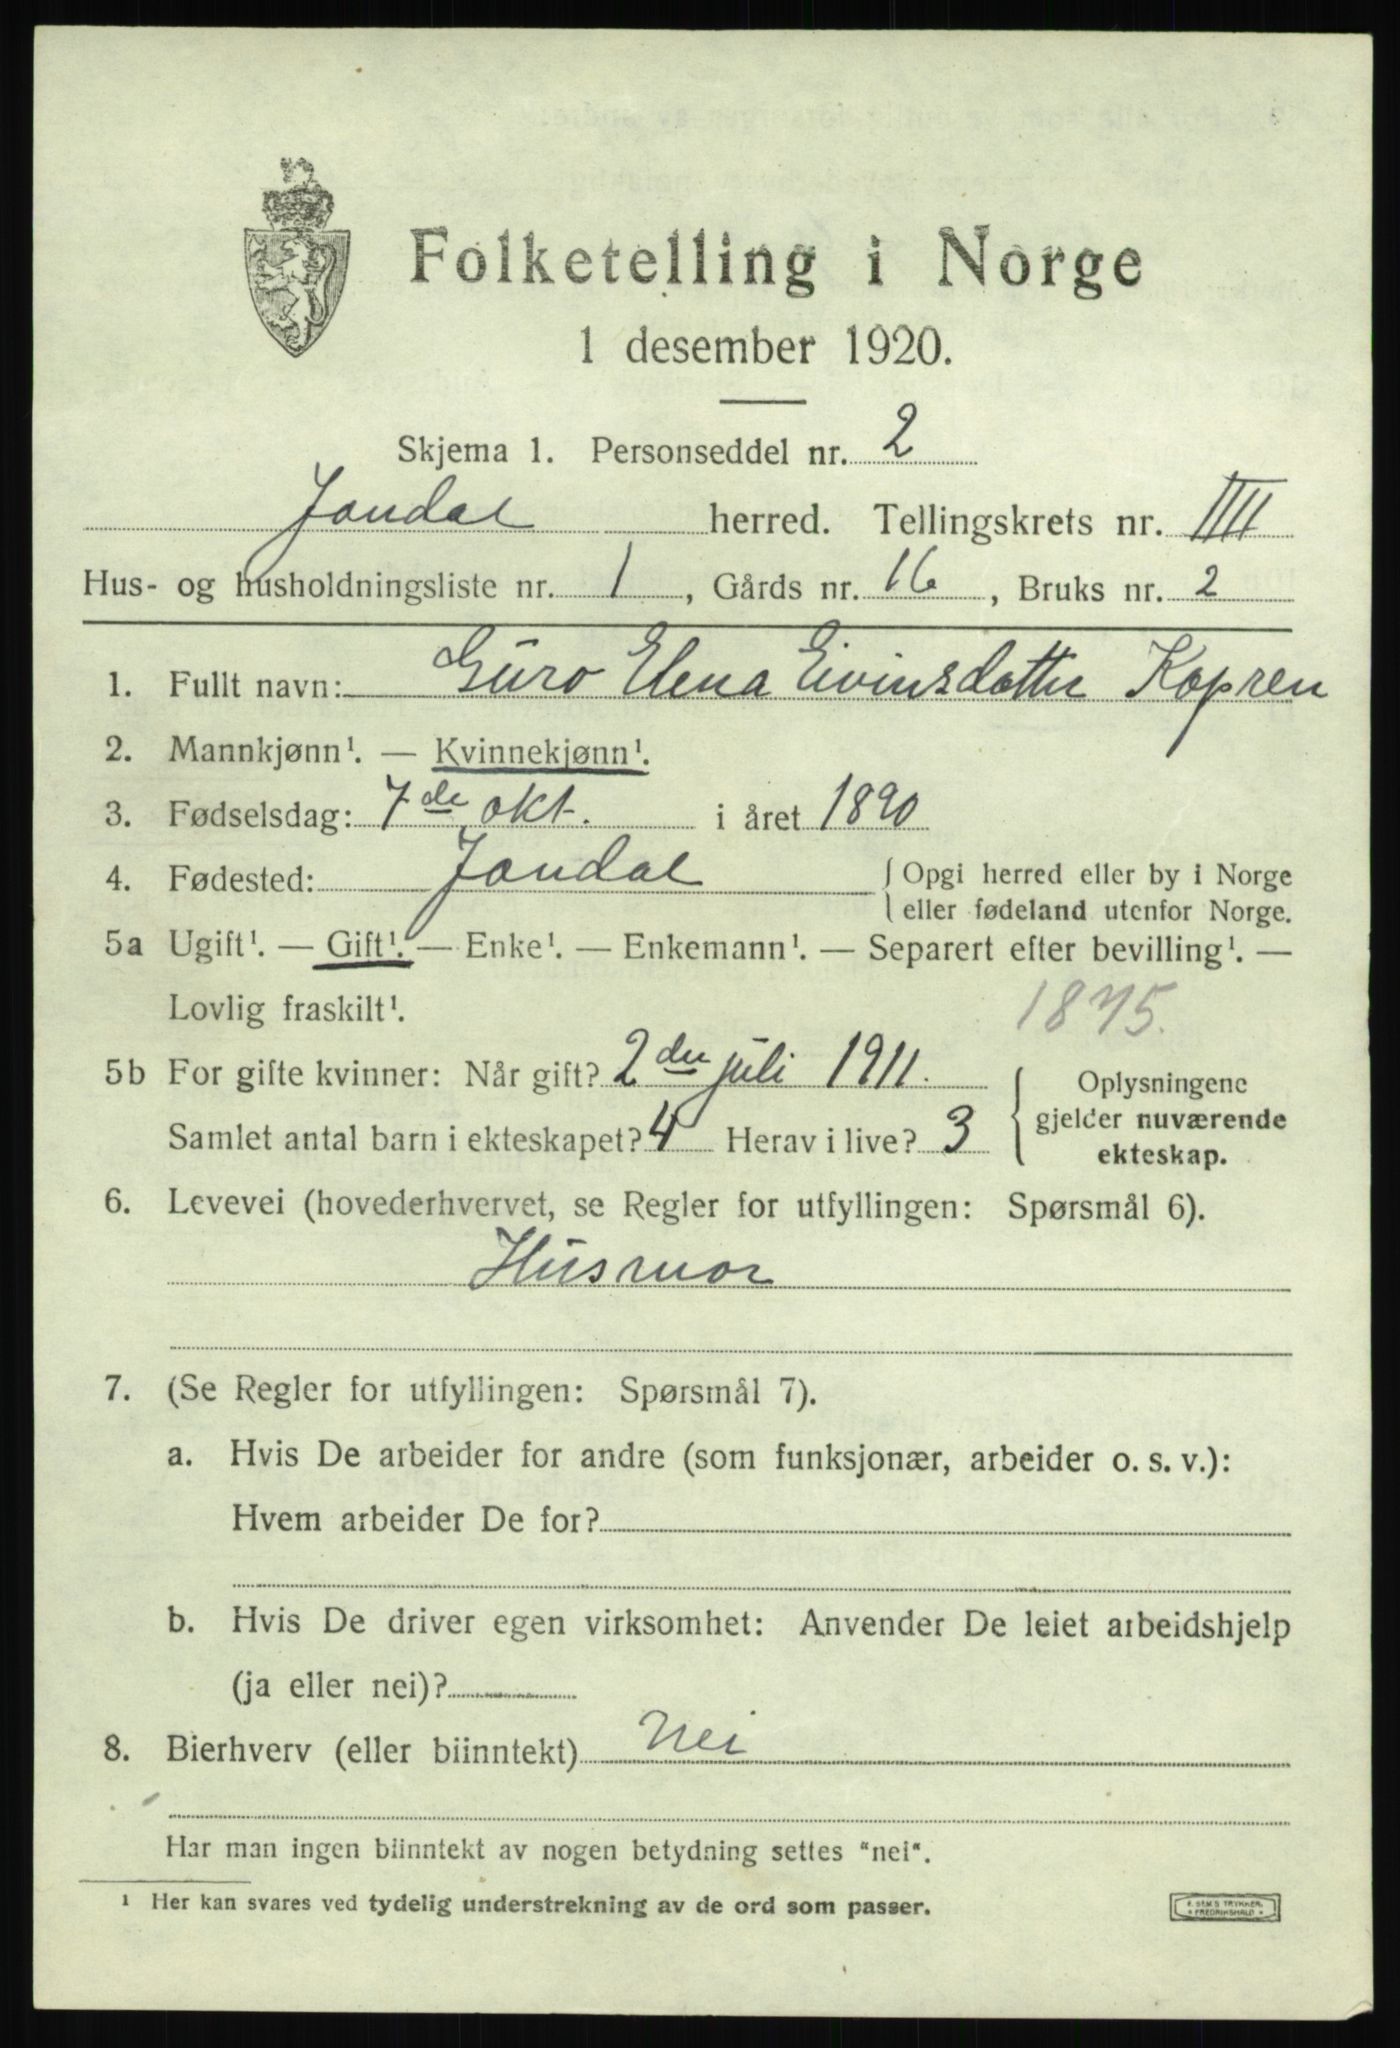 Folketelling i Norge
1 desember 1920.
Skjema 1. Personseddel nr. 2
Jondal herred. Tellingskrets nr. IIII
Hus- og husholdningsliste nr. 1, Gårds nr. 16, Bruks nr. 2
1. Fullt navn: Guro Elena Eivinsdotter Kopren
2. Mannkjønn¹. — Kvinnekjønn¹.
3. Fødselsdag: 7de okt. i året 1890
4. Fødested: Jondal { Opgi herred eller by i Norge
eller fødeland utenfor Norge.
5a Ugift¹. — Gift¹. — Enke¹. — Enkemann¹. — Separert efter bevilling¹. —
Lovlig fraskilt¹. 1875.
5b For gifte kvinner: Når gift? 2den juli 1911. { Oplysningene
gjelder nuværende
ekteskap.
Samlet antal barn i ekteskapet? 4 Herav i live? 3
6. Levevei (hovederhvervet, se Regler for utfyllingen: Spørsmål 6).
Husmor
7. (Se Regler for utfyllingen: Spørsmål 7).
a. Hvis De arbeider for andre (som funksjonær, arbeider o. s. v.):
Hvem arbeider De for?
b. Hvis De driver egen virksomhet: Anvender De leiet arbeidshjelp
(ja eller nei)?
8. Bierhverv (eller biinntekt) Nei
Har man ingen biinntekt av nogen betydning settes "nei".
¹ Her kan svares ved tydelig understrekning av de ord som passer.
E. SEM'S TRYKKERI
FREDRIKSHALD